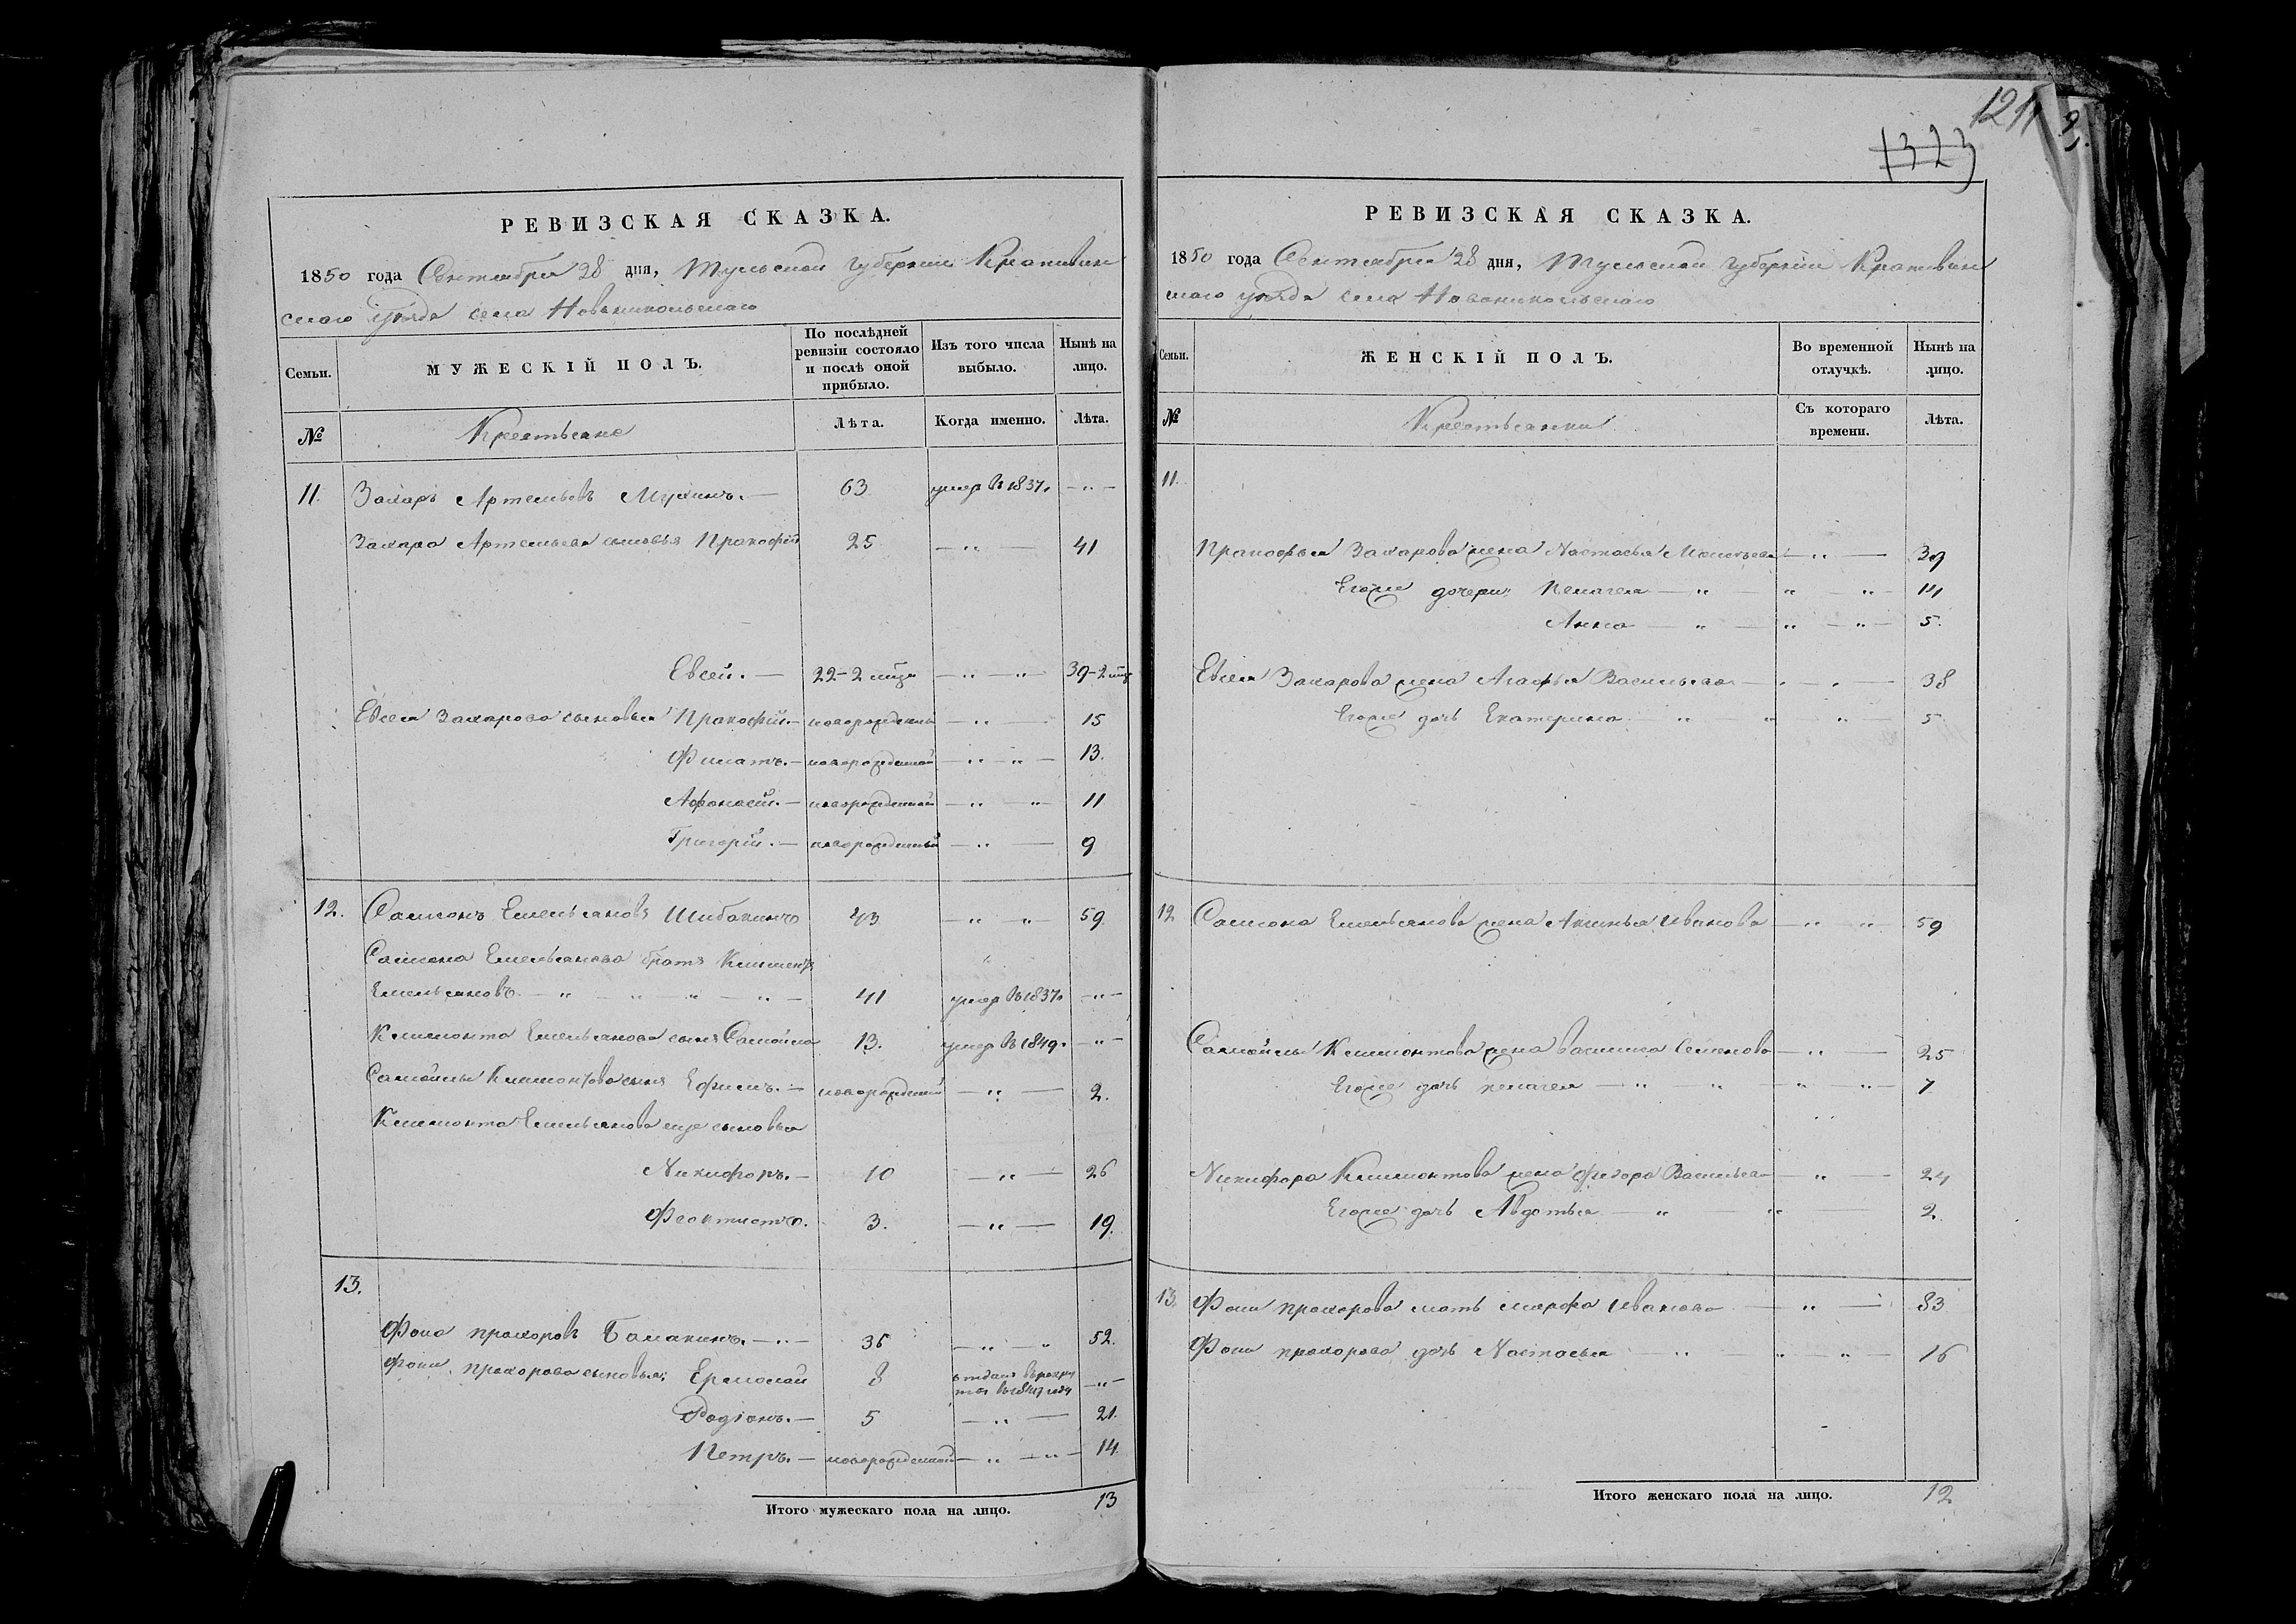 1211
1323
РЕВИЗСКАЯ СКАЗКА.
1850 года Сентября 28 дня, Тульской губернии Крапивин
скаго уѣзда села Новоникольскаго
Семьи.
МУЖЕСКІЙ ПОЛЪ.
По послѣдней ревизіи состояло и послѣ оной прибыло.
Изъ того числа выбыло.
Нынѣ на лицо.
№ Крестьяне Лѣта. Когда именно. Лѣта.
11. Захаръ Артемьевъ 63 умер в 1837. — " —
Захара Артемьева сыновья Прокофій 25 — " — 41
Евсей. — 22-2 — " — " — 39-2
Евсея Захарова сыновья Прокофій. — новорожденный — " — 15
Филатъ. — новорожденной — " — " — 13.
Афонасій. — новорожденной — " — " 11
Григорій. — новорожденный — " — 9
12. Самсонъ Емельяновъ Шибакинъ 43 — " — " — 59
Самсона Емельянова братъ Климентъ
Емельяновъ — " — " — " — " — 41 умер в 1837. — " —
Климонта Емельянова сынъ Самойла 13. умер в 1849. — " —
Самойлы Климонтова сынъ Ефимъ. — новорожденный — " — 2.
Климонта Емельянова еще сыновья
Никифоръ. — 10 — " — 26
Феоктистъ. 3. — " — 19.
13.
Фома Прохоровъ — " — 35 — " — " 52.
Фомы Прохорова сыновья: Ермолай 8 отданъ в рекру
ты в 1847 году — " —
Родіонъ. — 5 — " — 21.
Петръ. — новорожденной — " — " — 14.
Итого мужескаго пола на лицо. 13
РЕВИЗСКАЯ СКАЗКА.
1850 года Сентября 28 дня, Тульской губерніи Крапивин
скаго уѣзда села Новоникольскаго
Семьи.
ЖЕНСКІЙ ПОЛЪ.
Во временной отлучкѣ.
Нынѣ на лицо.
№ Крестьянки Съ котораго времени. Лѣта.
11.
Прокофья Захарова жена Настасья — " — 39
Егоже дочери: Пелагея — " — " — " — 14
Анна — " — " — " — 5.
Евсея Захарова жена Агафья Васильева — " — 38
Егоже дочь Екатерина — " — " — " — 5
12 Самсона Емельянова жена Аксинья Иванова — " — " — 59
Самойлы Климонтова жена Василиса Семенова — " — 25
Егоже дочь Пелагея — " — " — " — " — 7
Никифора Климонтова жена Федора Васильева — " — 24
Егоже дочь Авдотья — " — " 2.
13. Фомы Прохорова мать Марфа Иванова — " — 83
Фомы Прохорова дочь Настасья — " — " — " — 16
Итого женскаго пола на лицо. 12